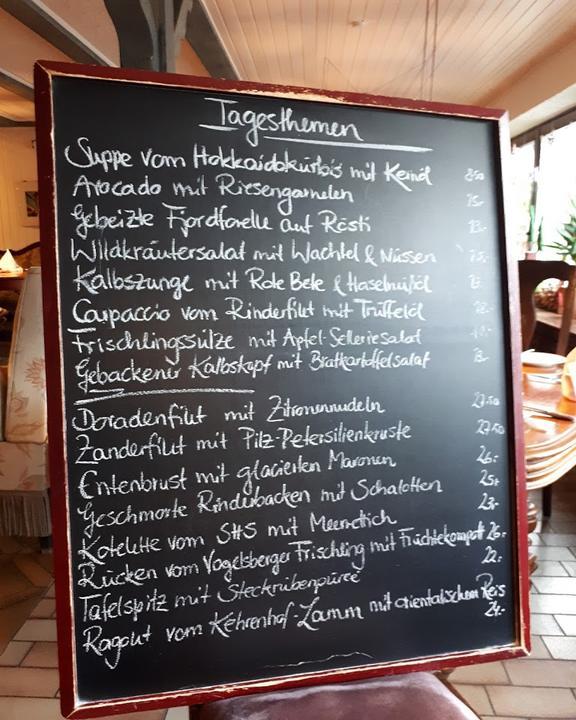 Tagesthemen
Suppe vom Hokkaidokürbis mit Kernöl 8.50
Avocado mit Riesengarnelen 15.-
Gebeizte Fjordforelle auf Rösti 13.-
Wildkräutersalat mit Wachtel & Nüssen 15.-
Kalbszunge mit Rote Bete & Haselnußöl
Carpaccio vom Rinderfilet mit Trüffelöl
Frischlingssülze mit Apfel-Selleriesalat
Gebackener Kalbskopf mit Bratkartoffelsalat 13.-
Doradenfilet mit Zitronennudeln 27.50
Zanderfilet mit Pilz-Petersilienkruste 27.50
Entenbrust mit glacierten Maronen 26.-
Geschmorte Rinderbacken mit Schalotten 25.-
Kotelette vom SHS mit Meerrettich 23.-
Rücken vom Vogelsberger Frischling mit Früchtekompott 26.-
Tafelspitz mit Steckrübenpüree 22.-
Ragout vom Kehrenhof-Lamm mit orientalischem Reis 24.-